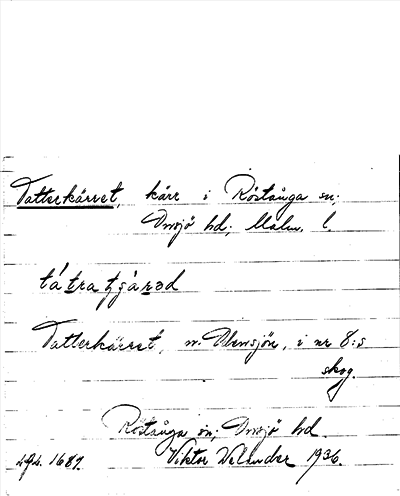 Tatterkärret, kärr i Röstånga sn;
Onsjö hd; Malm. l.
tátratʃæ̀rəd
Tatterkärret, n. Olensjön, i nr 8:s
skog.
Röstånga sn; Onsjö hd.
1687. Viktor Welander 1936.